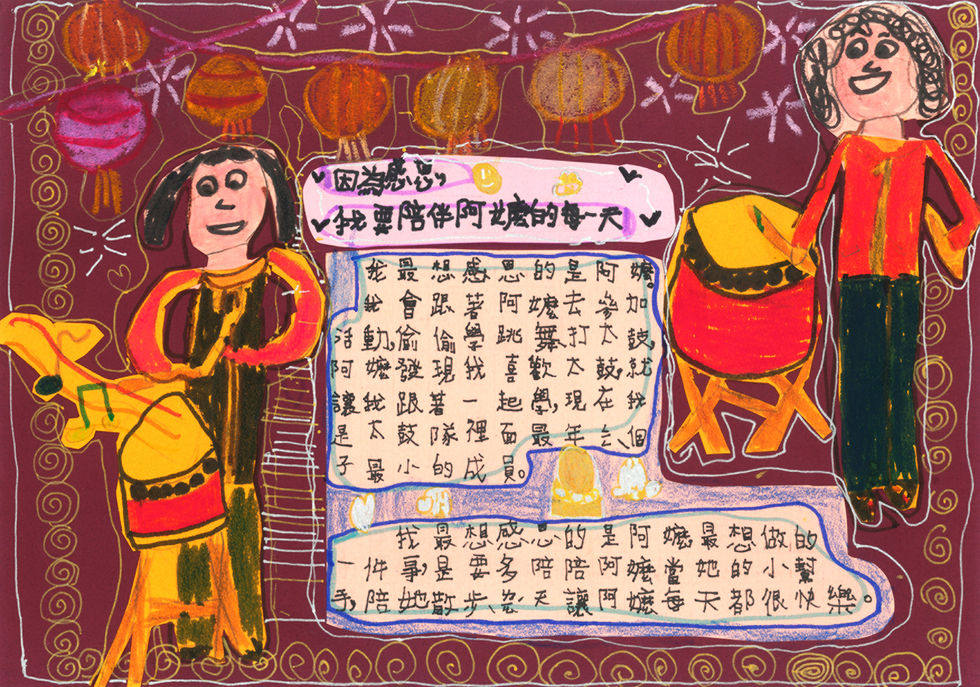 因為感恩,
我要陪伴阿嬤的每一天
我最想感恩的是阿嬤。
我會跟著阿嬤去參加
活動,偷偷學跳舞打太鼓,
阿嬤發現我喜歡太鼓,就
讓我跟著一起學,現在我
是太鼓隊裡面最年、個
子最小的成員。
我最想感恩的是阿嬤,最想做的
一件事,是要多陪陪阿嬤當她的小幫
手,陪她散步、天讓阿嬤每天都很快樂。